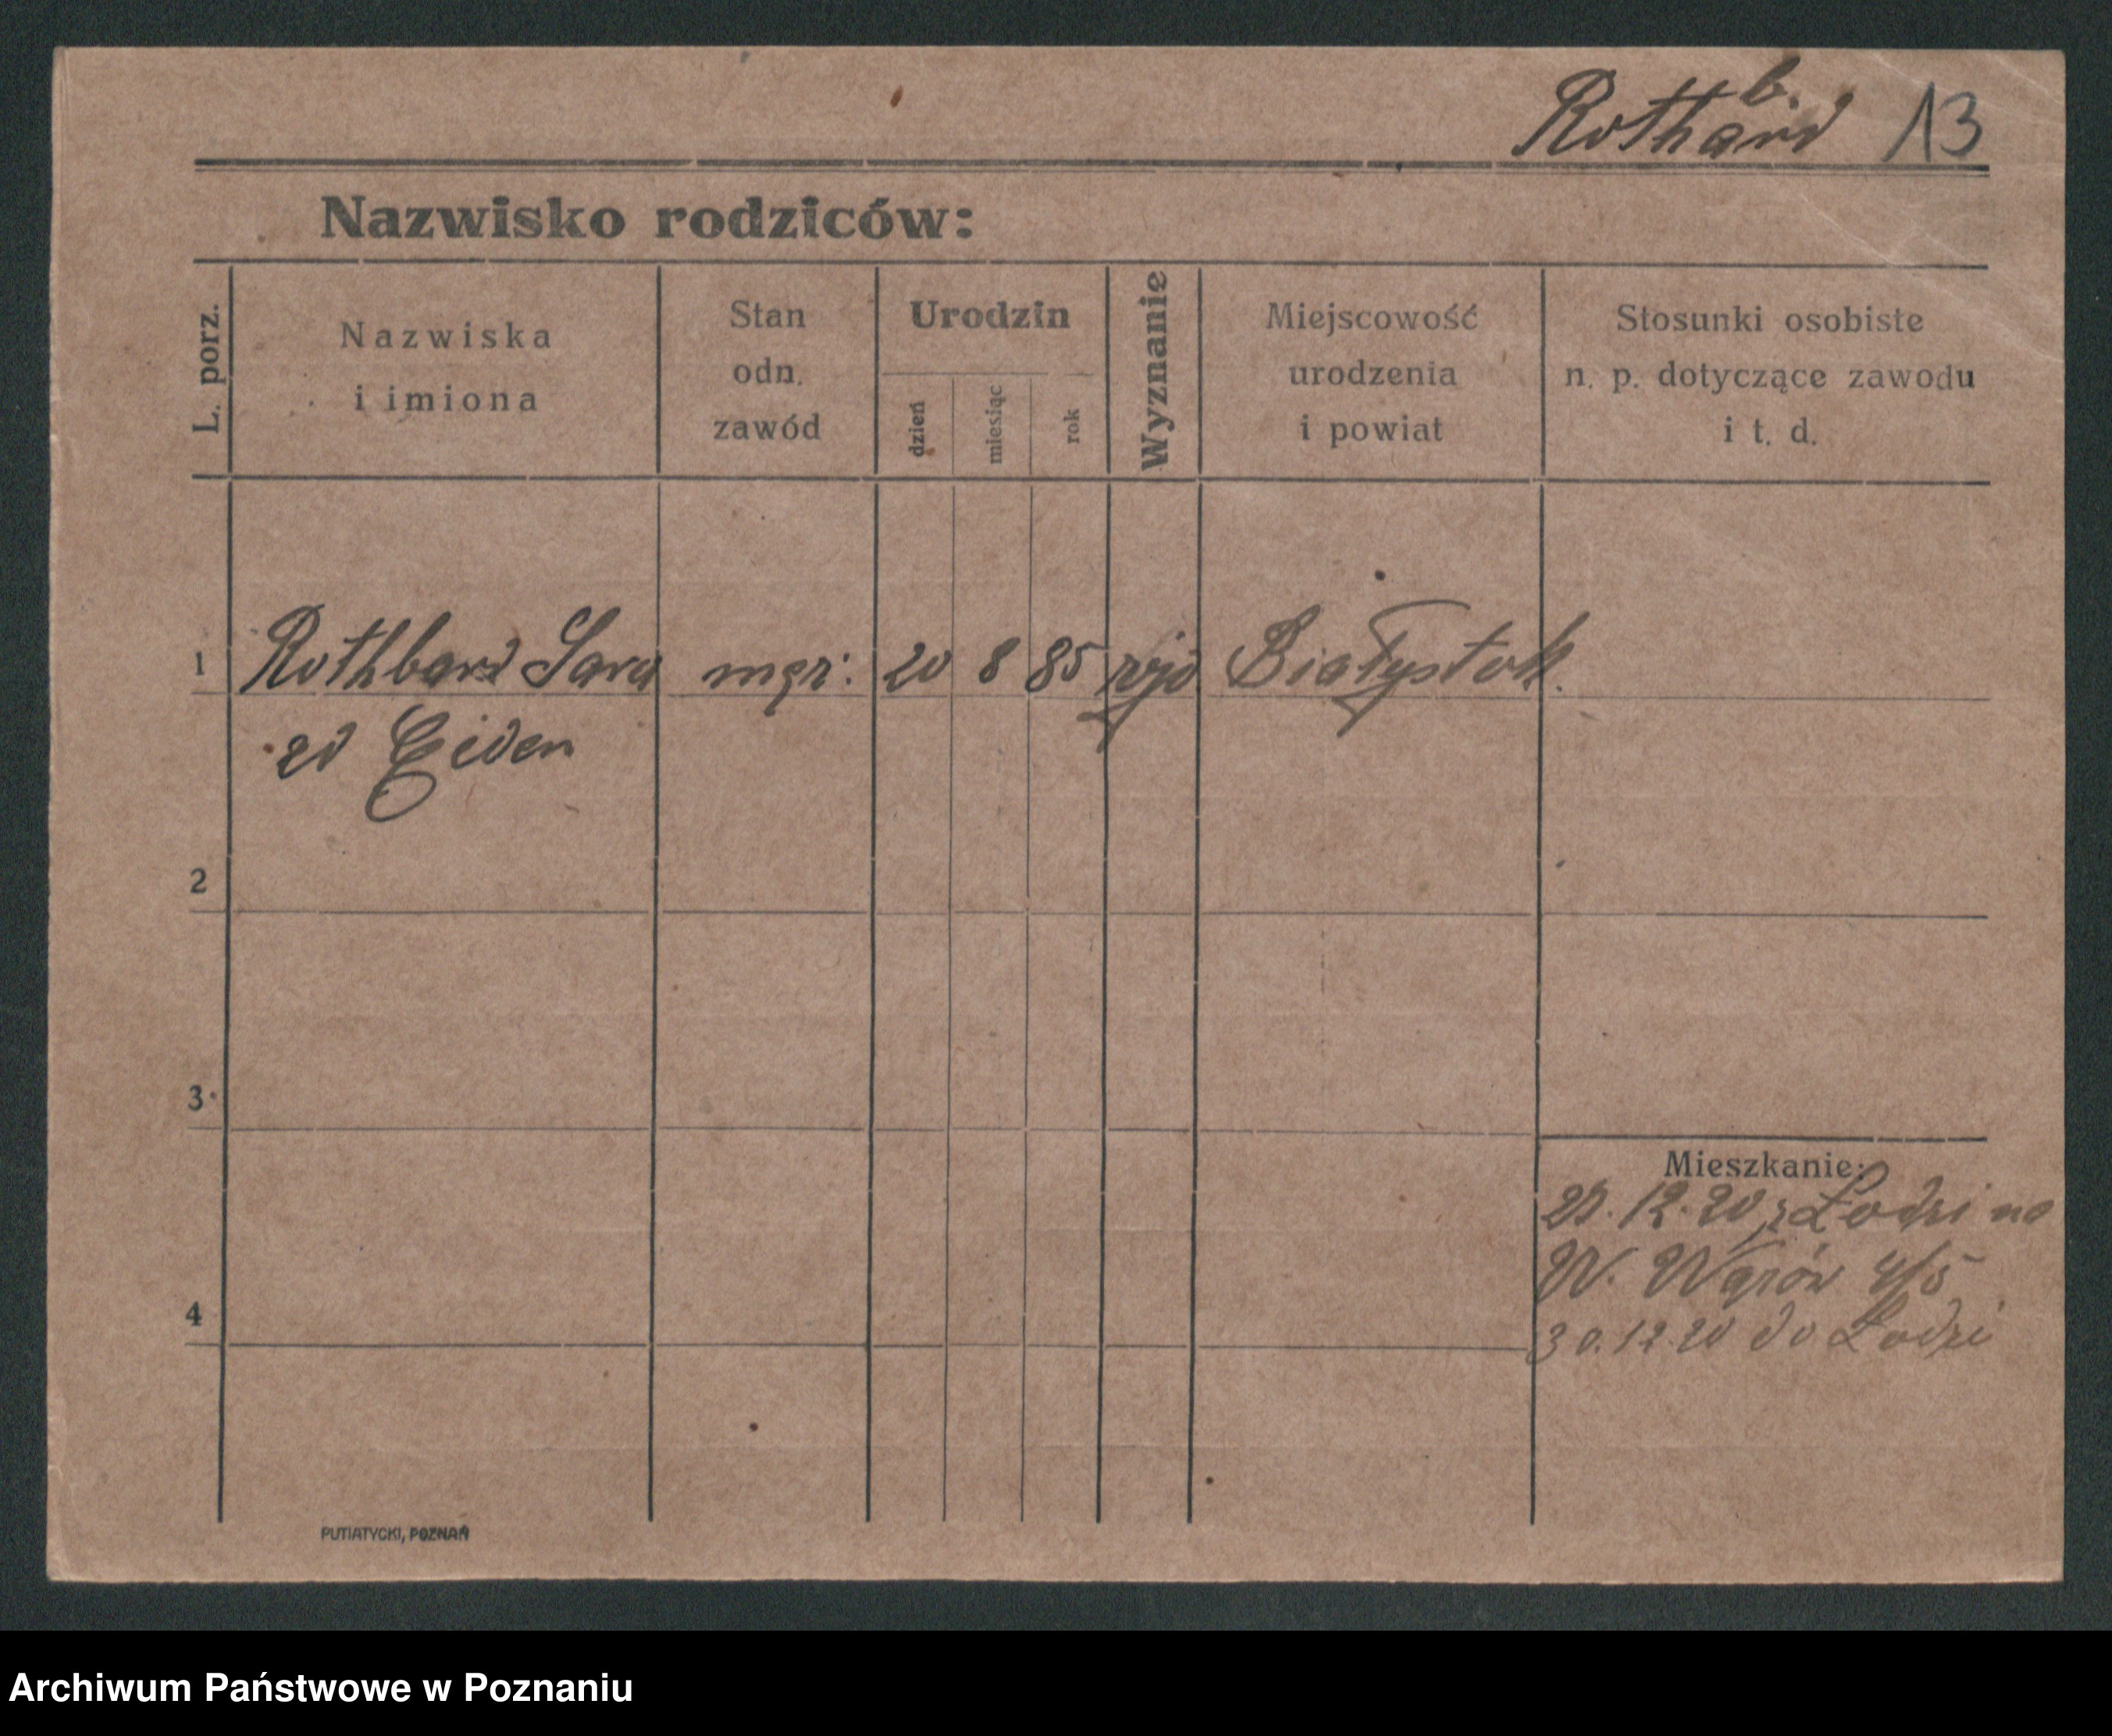 Rothbard 13
Nazwisko rodziców:
L. porz.
Nazwiska
i imiona
Stan
odn.
zawód
Urodzin
dzień
miesiąc
rok
Wyznanie
Miejscowość
urodzenia
i powiat
Stosunki osobiste
n. p. dotyczące zawodu
i t. d.
1 Rothbard Sara 20 8 85 Białystok
zd Eiden
2
3
Mieszkanie:
.12.20 z Łodzi na
W.
4
30.12.20 do Łodzi
PUTIATYCKI, POZNAŃ
Archiwum Państwowe w Poznaniu